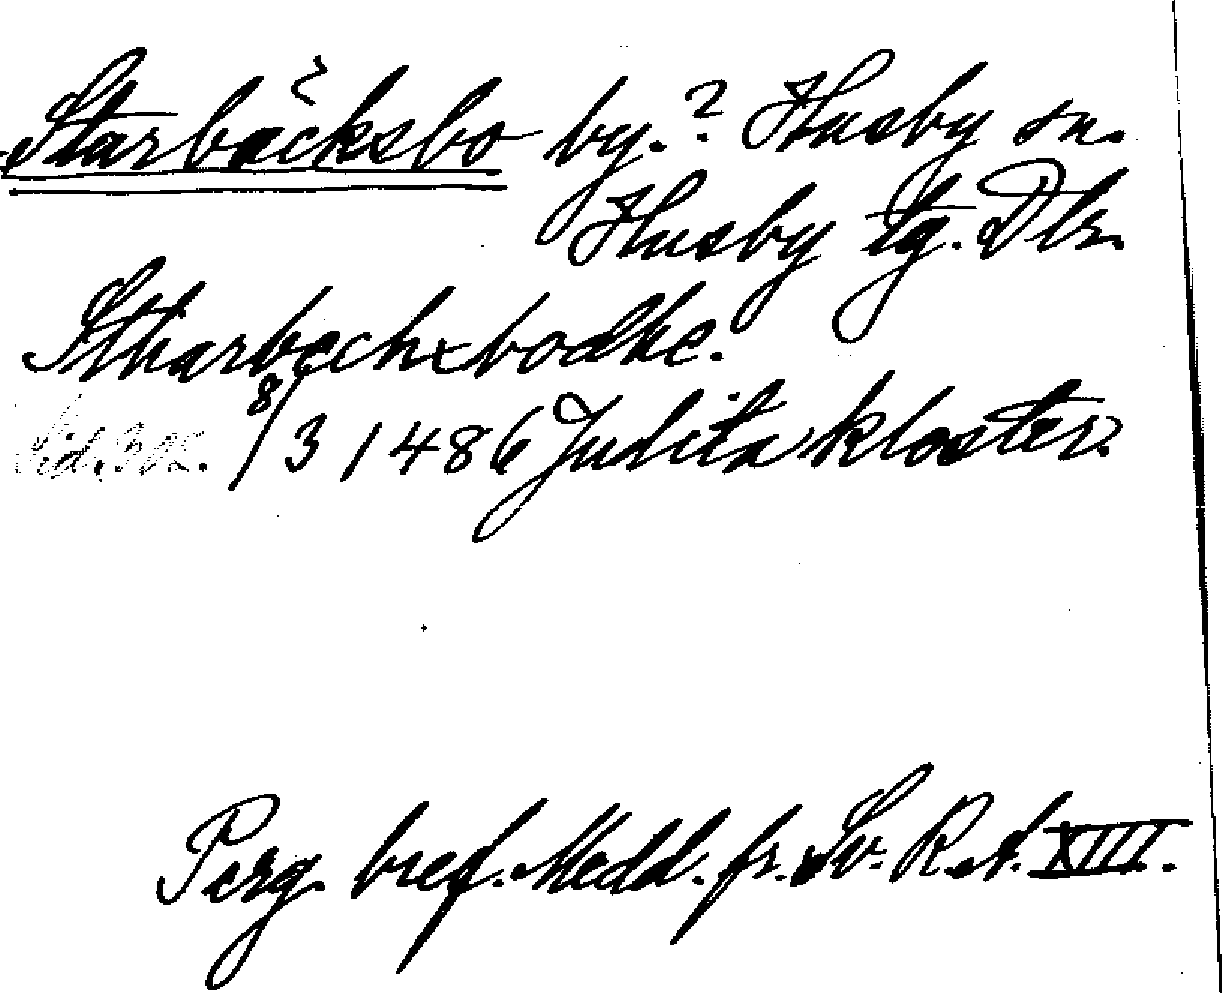 Starbäcksbo by.? Husby sn.
Husby tg. Dlr.
Stharbechxbodhe.
8/3 1486 Julita kloster.
Perg. bref. Medd. fr. Sv. R.A. XIII.